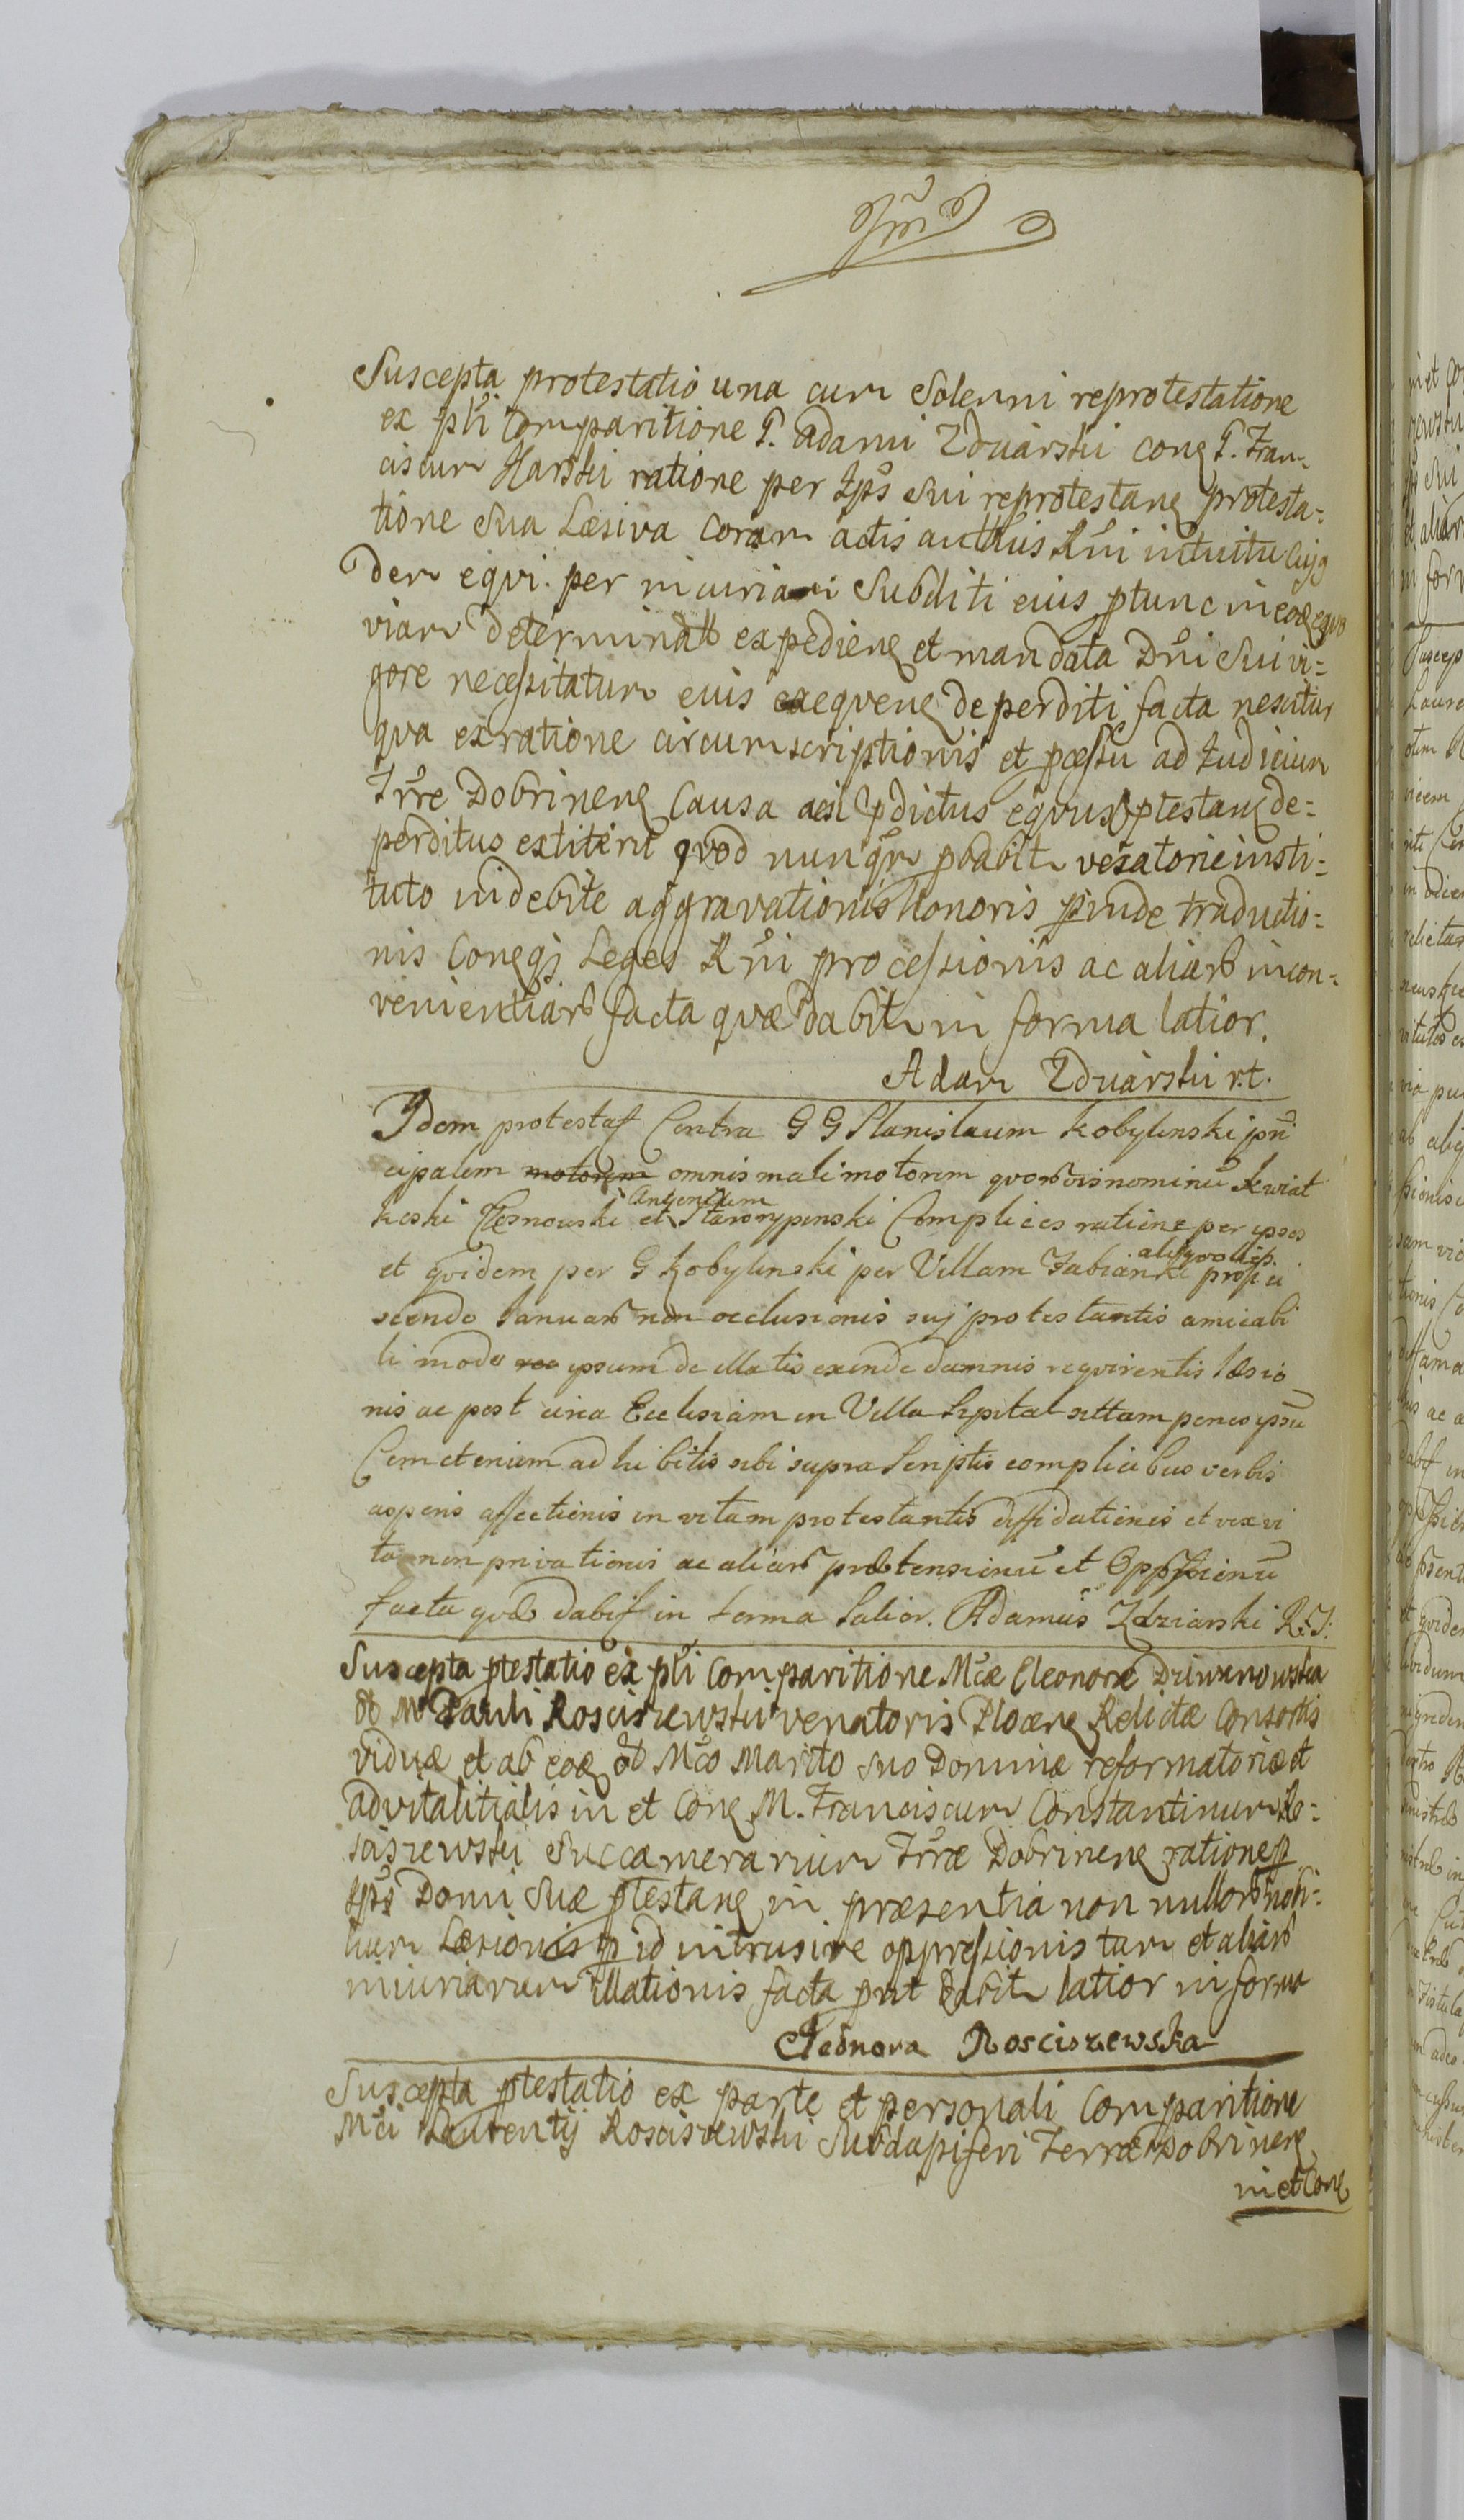 Suscepta protestatio una cum Solenni reprotestatione
ex pħi Comparitione G. Adami Zduarski conq G. Fran-
ciscum Harski ratione per Ips Sui reprotestanq protesta=
tione Sua Læsiva Coram actis Rñi intuitu
dem eqvi per incuriam Subditi eius ptunc in eoq eqvo
viam determinatt expedienq et mandata Dñi Sui vi=
gore necessitatum eius exequenq deperditi facta nescitur
qva ex ratione circumscriptionis et ad Judicium
Trre Dobrinenq Causa acsi pdictus eqvus ptestanq de=
perditus extiterit qvod nunqr pbabit vexatorie insti=
tuto indebite aggravationis honoris pinde traductio=
nis Conqj Leges Rñi processionis ac aliarb incon=
venientiarb facta qvæ dabit in forma latior.
Adam Zduarski r.t.
Idem protestat Contra G G Stanislaum Kobylinski prin
cipalem motorem omnis mali motorem qvorbvis nominū Kwiat
koski Czesnowski et Antonium Starorypinski Complices ratione per ipsos
et qvidem per G Kobylinski per Villam Fabianki profici
scendo Januarb non occlusionis suj protestantis amicabi
li modo ipsum de illatis exinde damnis reqvirentis læsio
nis ac post circa Ecclesiam in Villa Szpital sittam penes ipsū
Cemeterium adhibitis sibi supra Scriptis complicibus verbis
asperis affectionis in vitam protestantis diffidationis et vix vi
ta non privationis ac aliarb prætensionū et Oppssionū
facta qvæ dabit in forma Latior. Adamus Zdziarski R.T.
Suscepta ptestatio ex pħi Comparitione Mcæ Eleonoræ Dziwanowska
M Pauli Rosciszewski venatoris Plocenq Relictæ Consortis
viduæ et ab eoq Mco Marito suo Dominæ reformatoriæ et
advitalitialis in et Conq M. Franciscum Constantinum Ro=
sciszewski Succamerarium Trræ Dobrinenq ratione p
Ips Domi Suæ ptestanq in præsentia non nullorb nobi=
lium Læsionis p id intrusive oppressionis tum et aliarb
iniuriarum illationis facta put dabit latior in forma
Eleonora Rosciszewska
Suscepta ptestatio ex parte et personali Comparitione
Mci Laurentij Rosciszewski Subdapiferi Terræ Dobrinenq
in et Conq